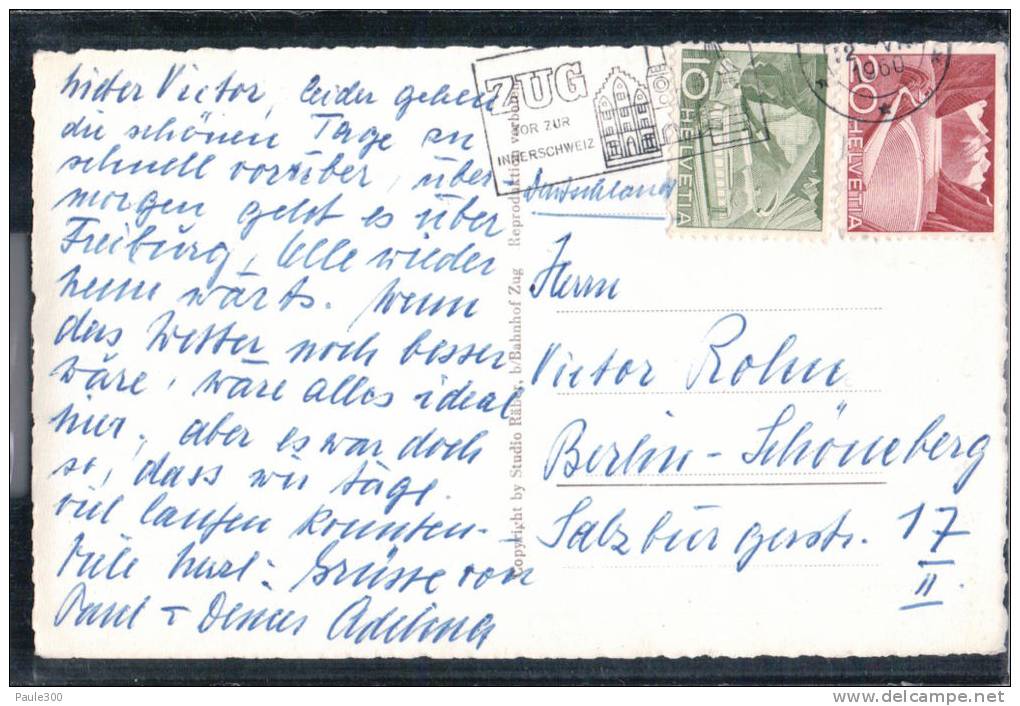 lieber Victor, leider gehen
die schönen Tage zu
schnell vorüber, über-
morgen geht es über
Freiburg, Alle wieder
heim wärts. Wenn
das Wetter noch besser
wäre, wäre alles ideal
hier, aber es war doch
so, dass wir täge.
viel laufen konnten -
Viele herzl: Grüsse von
Paul + Deiner
ZUG
TOR ZUR
INNERSCHWEIZ
12
1960
10 HELVETIA
20 HELVETIA
Deutschland
Copyright by Studio Räber, b/Bahnhof Zug Reproduktion verboten
Herrn
Victor Rohn
Berlin - Schöneberg
Salzburgerstr. 17
II.
Paule300
delcampe.net